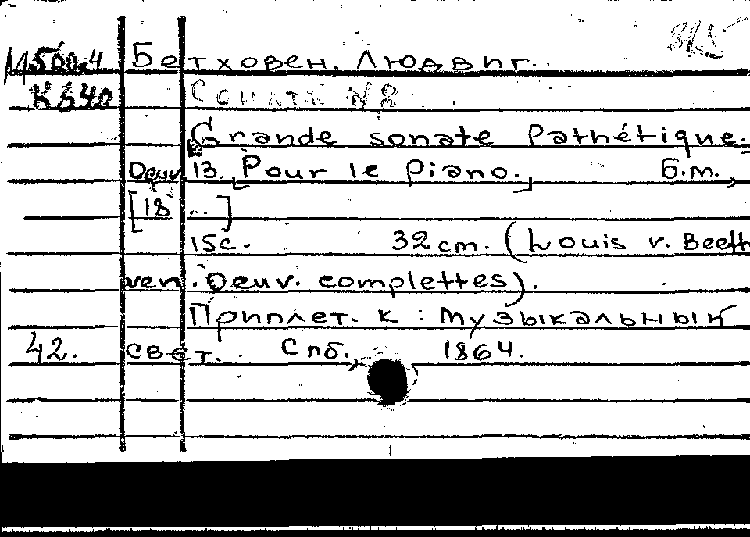 Бетховен, Людвиг.
К840
Соната № 8
Grande sonate Pathétique.
Oeuv. 13. [Pour le piano.] Б.м.,
[18 ..]
15с. 32 cm. (Louis v. Beeth
ven. Oeuv. complettes).
Приплет. к : Музыкальный
42. свет. Спб., 1864.